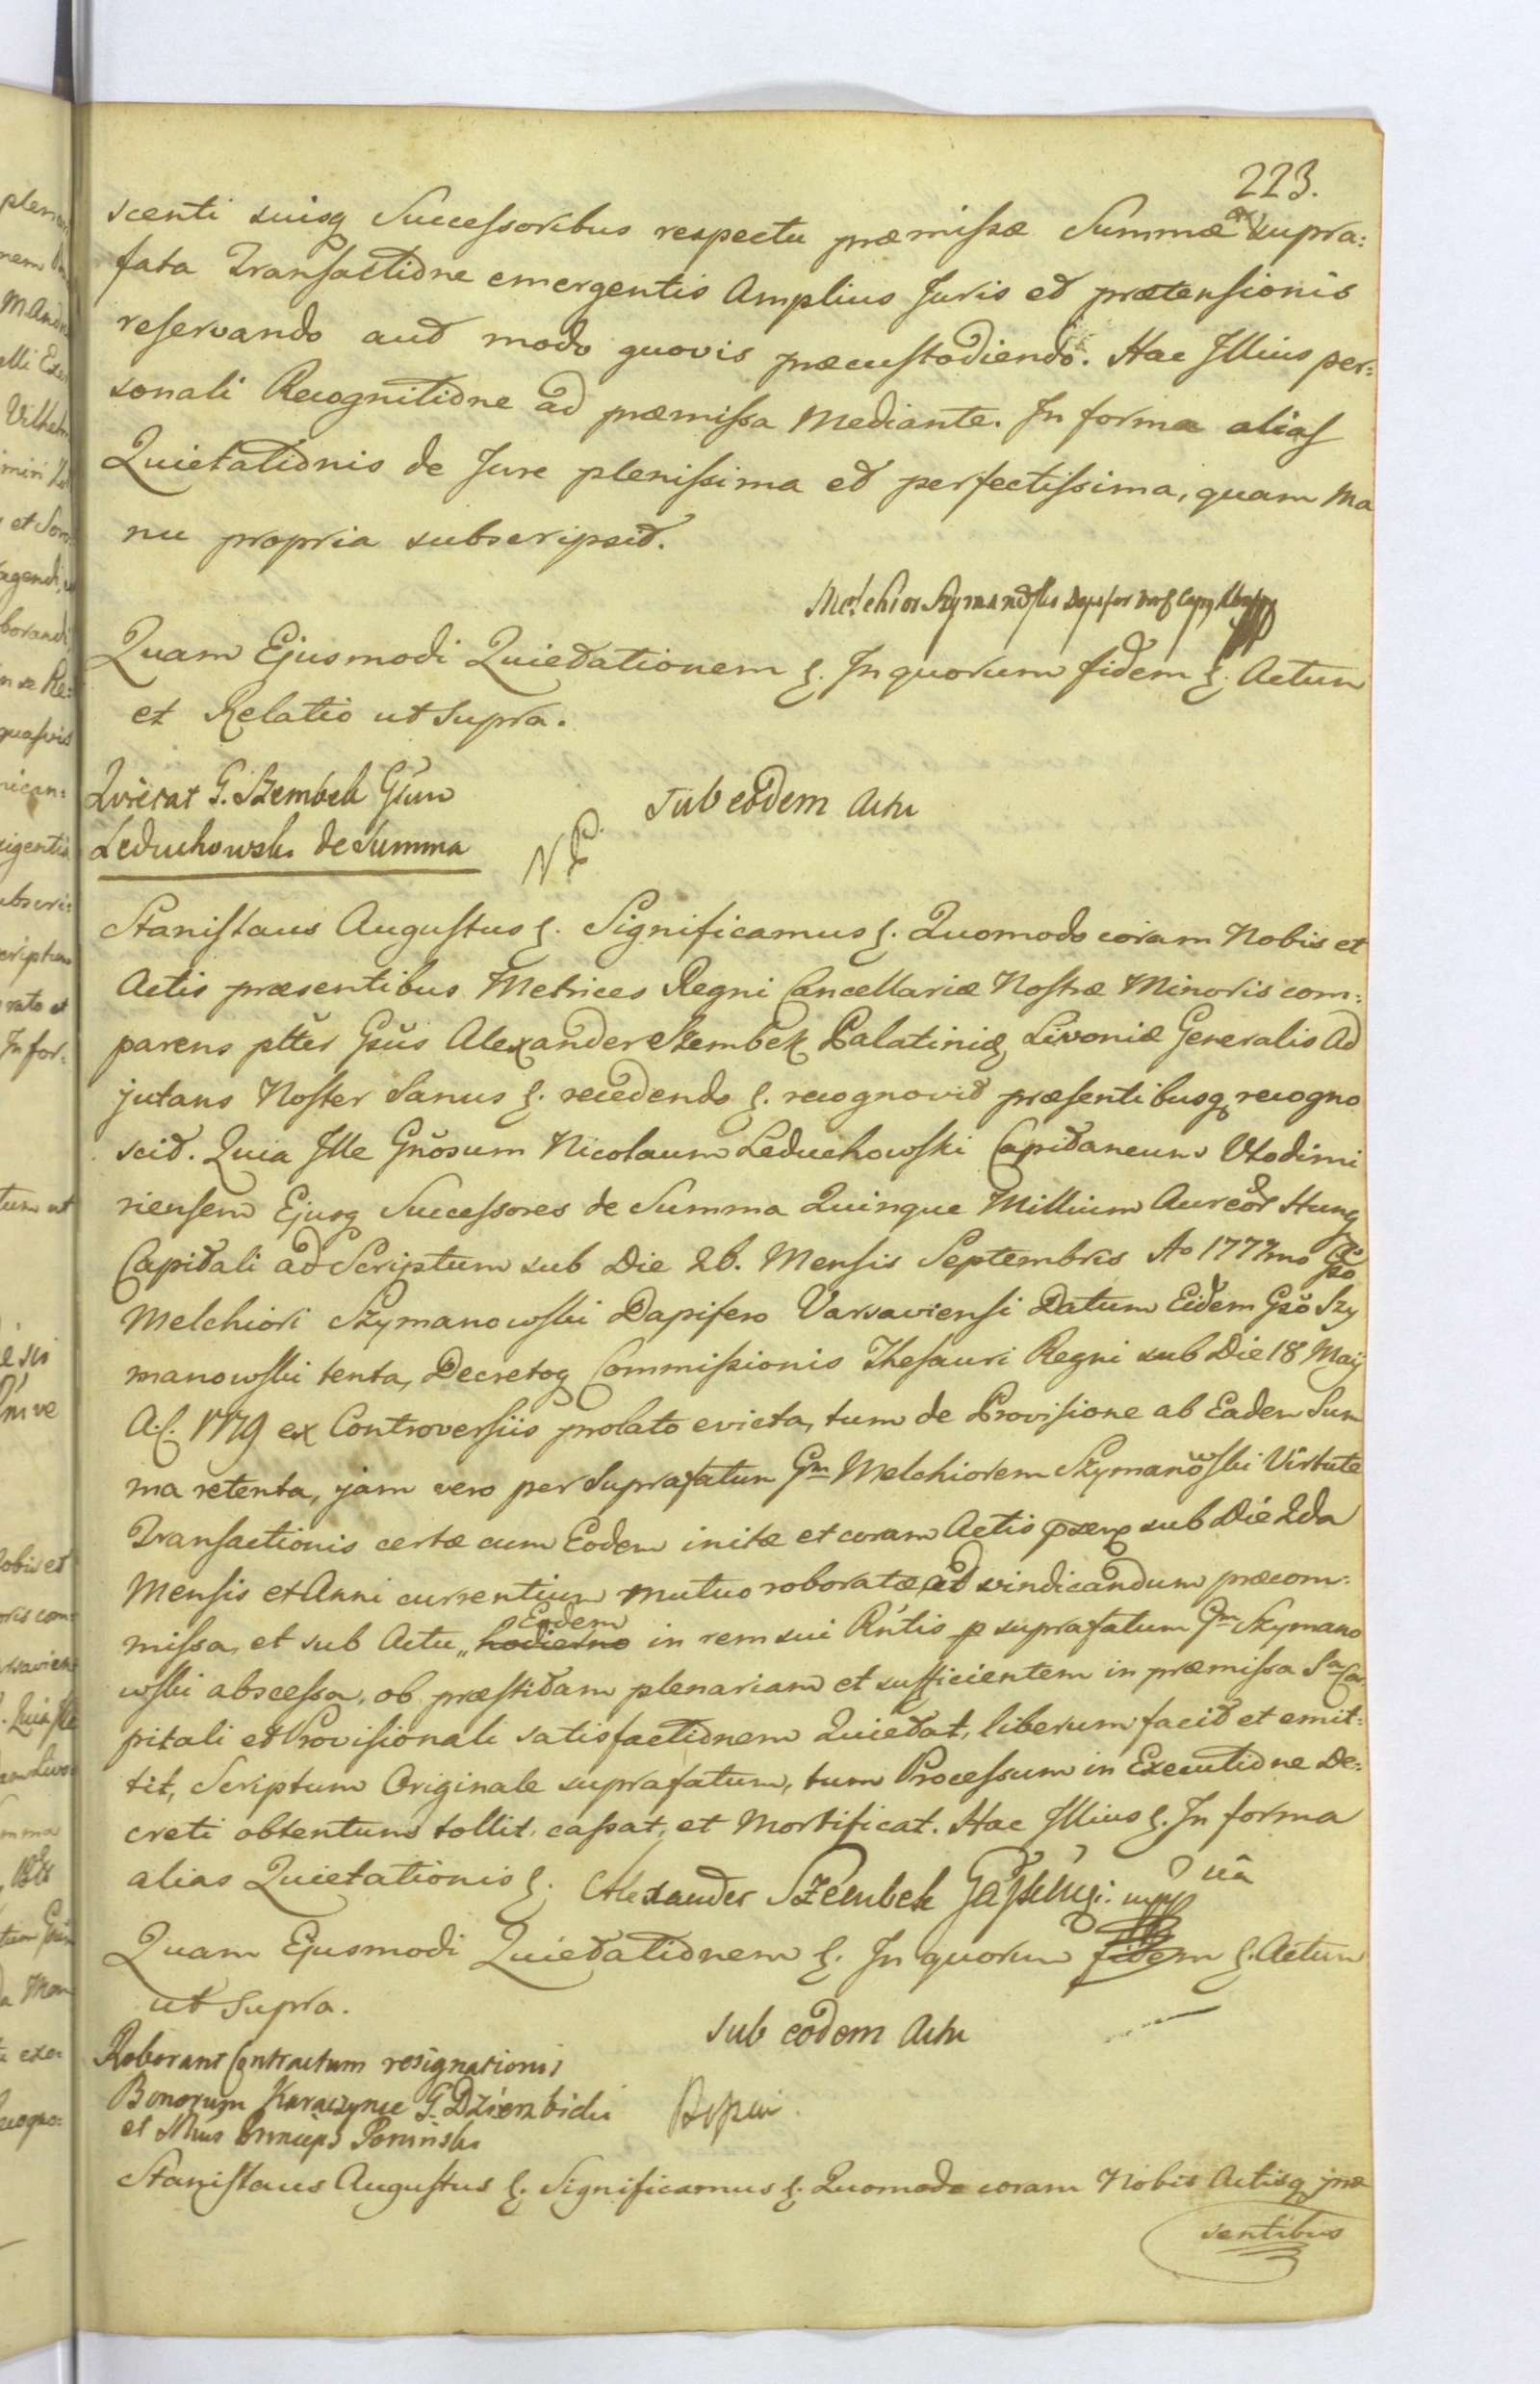 223.
scenti suisq Successoribus respectu præmissæ Summæ supra:
fata Transactione emergentis Amplius Juris et prætensionis
reservando aut modo quovis præcustodiendo. Hac Illius per:
sonali Recognitione ad præmissa Mediante. In forma alias
Quietationis de Jure plenissima et perfectissima, quam Ma
nu propria subscripsit.
Melchior Szymanowski
Quam Ejusmodi Quietationem §. In quorum fidem §. Actum
et Relatio ut supra.
Quietat G. Szembek Gsum
Leduchowski de Summa
Sub eodem Actu
Stanislaus Augustus §. Significamus §. Quomodo coram Nobis et
Actis præsentibus Metrices Regni Cancellariæ Nostræ Minoris com:
parens pltēr Gsūs Alexander Szembek Palatinidæ Livoniæ Generalis Ad
jutans Noster Sanus §. recedendo §. recognovit præsentibusq recogno
scit. Quia Ille Gnosum Nicolaum Leduchowski Capitaneum Vlodimi
riensem Ejusq Successores de Summa Quinque Millium Aureor Hung
Capitali ad Scriptum sub Die 26. Mensis Septembris Ao 1777mo Gso
Melchiori Szymanowski Dapifero Varsaviensi Datum Eidem Gso Szy
manowski tenta, Decretoq Commissionis Thesauri Regni sub Die 18 Maij
A. C. 1779 ex Controversiis prolato evicta, tum de Provisione ab Eadem Sum
ma retenta, jam vero per Suprafatum Gm Melchiorem Szymanowski Virtute
Transactionis certæ cum Eodem initæ et coram Actis sub Die 2da
Mensis et Anni currentium mutuo roboratæ ad vindicandum præcom:
missa, et sub Actu „ hodierno Eodem in rem sui Rntis p suprafatum Gm Szymano
wski abscessa, ob præstitam plenariam et sufficientem in præmissa Sa Ca
pitali et Provisionali satisfactionem Quietat, liberum facit et emit:
tit, Scriptum Originale suprafatum, tum Processum in Executione De:
creti obtentum tollit, cassat, et Mortificat. Hac Illius §. In forma
alias Quietationis §. Alexander Szembek
Quam Ejusmodi Quietationem §. In quorum fidem §. Actum
ut supra.
Sub eodem Actu
Roborant Contractum resignationis
Bonorum Karaczynce G. Dzierzbicki
et Princeps Poninski
Stanislaus Augustus §. Significamus §. Quomodo coram Nobis Actisq præ
sentibus